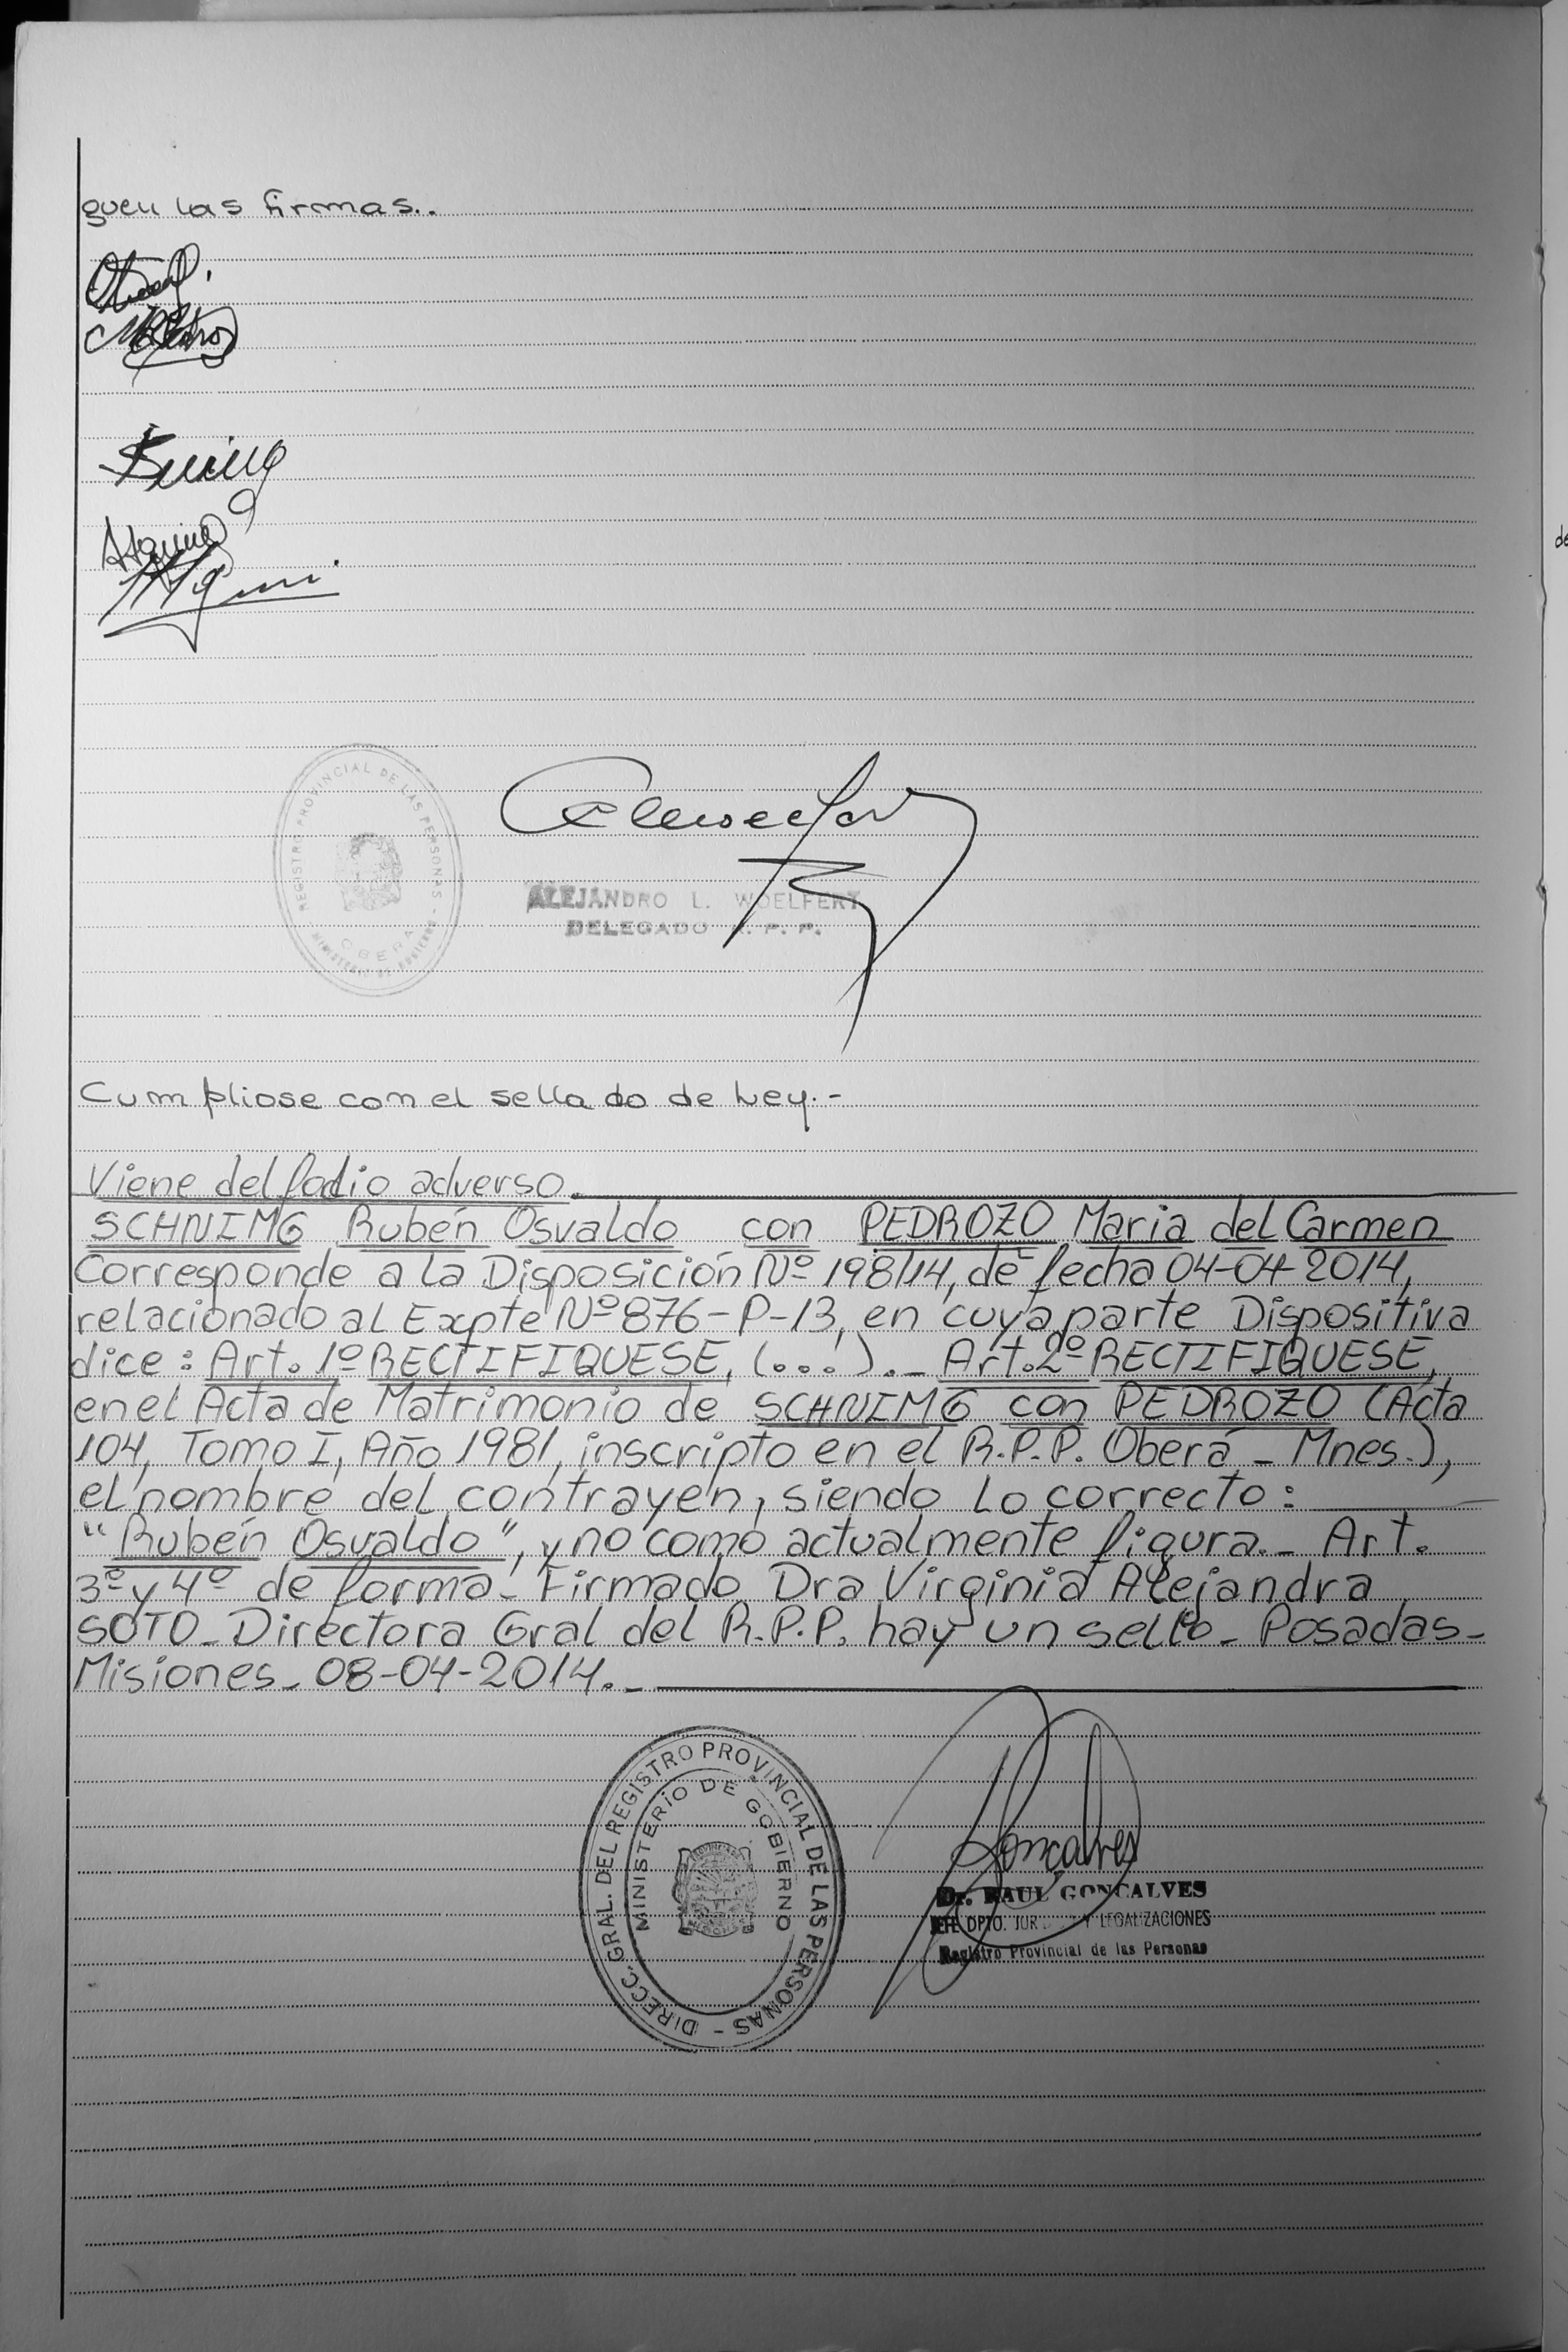 guen las firmas..
REGISTRO PROVINCIAL DE LAS PERSONAS -
MINISTERIO DE GOBIERNO
OBERA
ALEJANDRO L. WOELFERT
DELEGADO R. P. P.
Cumpliose con el sellado de Ley.-
Viene del folio adverso.
SCHNIMG Rubén Osvaldo con PEDROZO Maria del Carmen
Corresponde a la Disposición Nº 198/14, de fecha 04-04-2014,
relacionado al Expte Nº 876-P-13, en cuya parte Dispositiva
dice: Art. 1º RECTIFIQUESE, (...)._ Art. 2º RECTIFIQUESE,
en el Acta de Matrimonio de SCHNIMG con PEDROZO (Acta
104, Tomo I, Año 1981, inscripto en el R.P.P. Oberá _ Mnes.),
el nombre del contrayen, siendo lo correcto:
"Rubén Osvaldo", y no como actualmente figura._ Art.
3º y 4º de forma_ Firmado Dra Virginia Alejandra
SOTO_ Directora Gral del R.P.P. hay un sello_ Posadas_
Misiones_ 08-04-2014._
DIRECC. GRAL. DEL REGISTRO PROVINCIAL DE LAS PERSONAS -
MINISTERIO DE GOBIERNO
Goncalves
Dr. RAUL GONCALVES
JEFE DPTO. JUR Y LEGALIZACIONES
Registro Provincial de las Personas